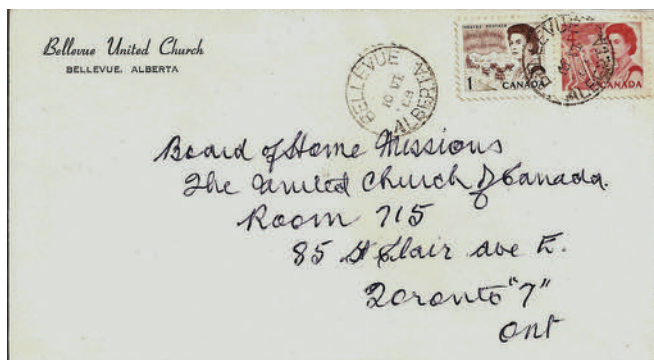 Bellevue United Church
BELLEVUE, ALBERTA
BELLEVUE
ALBERTA
1 CANADA
CANADA
Board of Home Missions
The United Church of Canada.
Room 715
85 St Clair ave E.
Toronto "7"
Ont